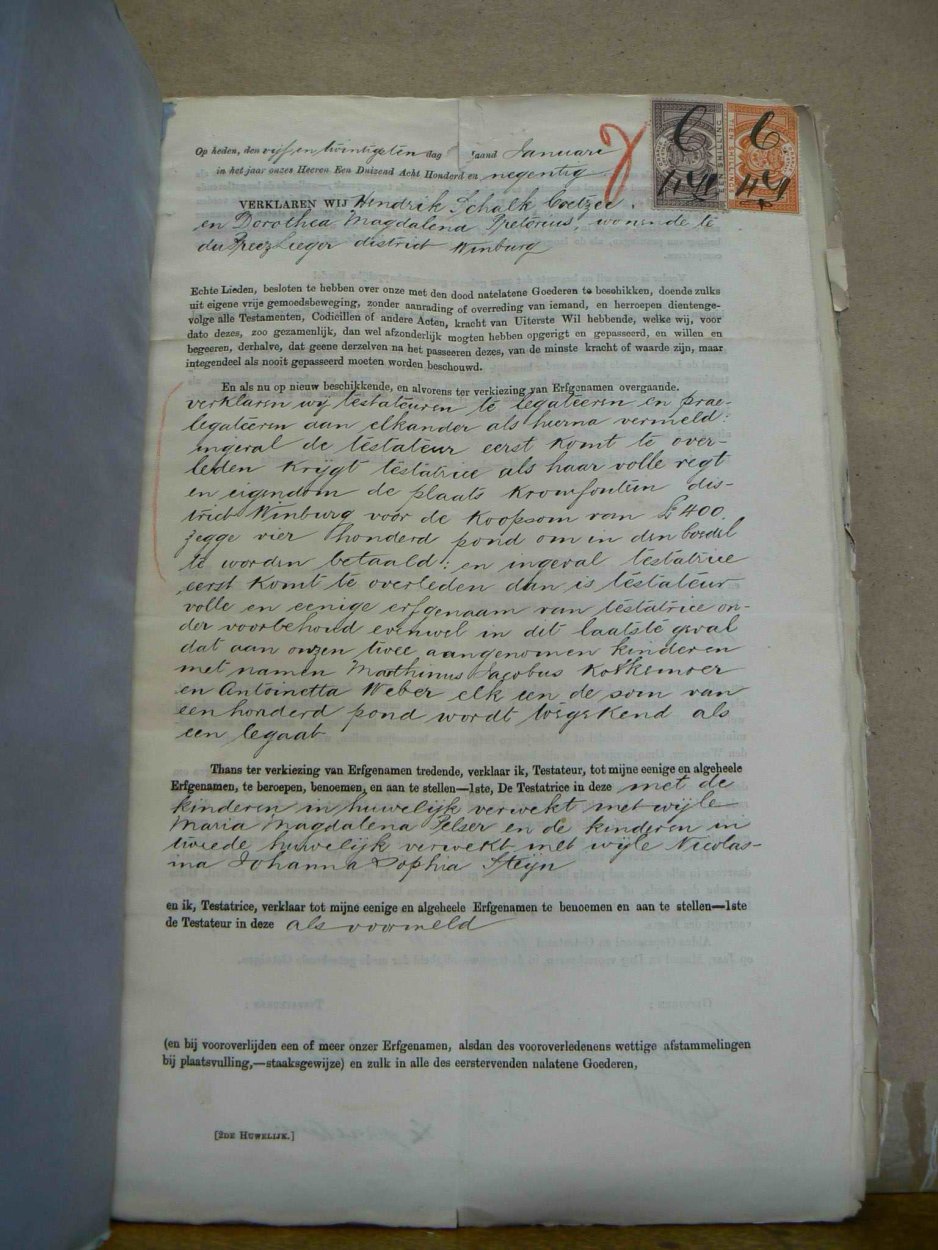 Op heden, den vyf en twintigsten dag maand Januari
in het jaar onzes Heeren Een Duizend Acht Honderd en negentig
VERKLAREN WIJ Hendrik Schalk Coetzee.
en Dorothea Magdalena Pretorius, wonende te
du Preez Leger district Winburg
Echte Lieden, besloten te hebben over onze met den dood natelatene Goederen te beschikken, doende zulks
uit eigene vrije gemoedsbeweging, zonder aanrading of overreding van iemand, en herroepen dientenge-
volge alle Testamenten, Codicillen of andere Acten, kracht van Uiterste Wil hebbende, welke wij, voor
dato dezes, zoo gezamenlijk, dan wel afzonderlijk mogten hebben opgerigt en gepasseerd, en willen en
begeeren, derhalve, dat geene derzelven na het passeeren dezes, van de minste kracht of waarde zijn, maar
integendeel als nooit gepasseerd moeten worden beschouwd.
En als nu op nieuw beschikkende, en alvorens ter verkiezing van Erfgenamen overgaande.
verklaren wy testateuren te legateeren en prae-
legateeren aan elkander als hierna vermeld:
ingeval de testateur eerst komt te over-
leden krygt testatrice als haar volle regt
en eigendom de plaats Kromfontein dis-
trict Winburg voor de koopsom van £400.
zegge vier honderd pond om in den boedel
te worden betaald: en ingeval testatrice
eerst komt te overleden dan is testateur
volle en eenige erfgenaam van testatrice on-
der voorbehoud evenwel in dit laatste geval
dat aan onzen twee aangenomen kinderen
met namen Marthinus Jacobus Kotksmoer
en Antoinetta Weber elk een de som van
eenhonderd pond wordt toegekend als
een legaat
Thans ter verkiezing van Erfgenamen tredende, verklaar ik, Testateur, tot mijne eenige en algeheele
Erfgenamen, te beroepen, benoemen, en aan te stellen—1ste, De Testatrice in deze met de
kinderen in huwelijk verwekt met wyle
Maria Magdalena Pelser en de kinderen in
tweede huwelyk verwekt met wyle Nicolas-
ina Johanna Sophia Steyn
en ik, Testatrice, verklaar tot mijne eenige en algeheele Erfgenamen te benoemen en aan te stellen—1ste
de Testateur in deze als voormeld
(en bij vooroverlijden een of meer onzer Erfgenamen, alsdan des vooroverledenens wettige afstammelingen
bij plaatsvulling,—staaksgewijze) en zulk in alle des eerstervenden nalatene Goederen,
[2DE HUWELIJK.]